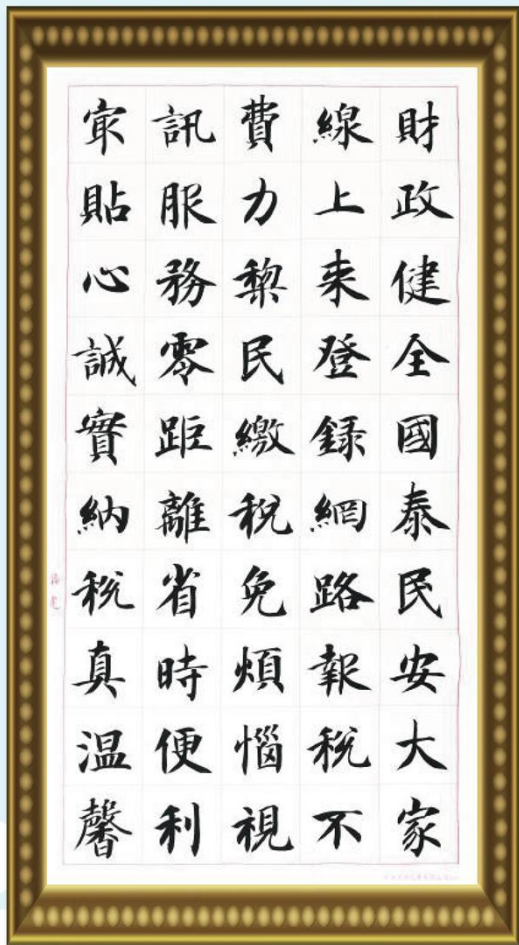 財政健全國泰民安大家
線上来登録網路報稅不
費力黎民繳稅免煩惱視
訊服務零距離省時便利
㝡貼心誠實納稅真温馨